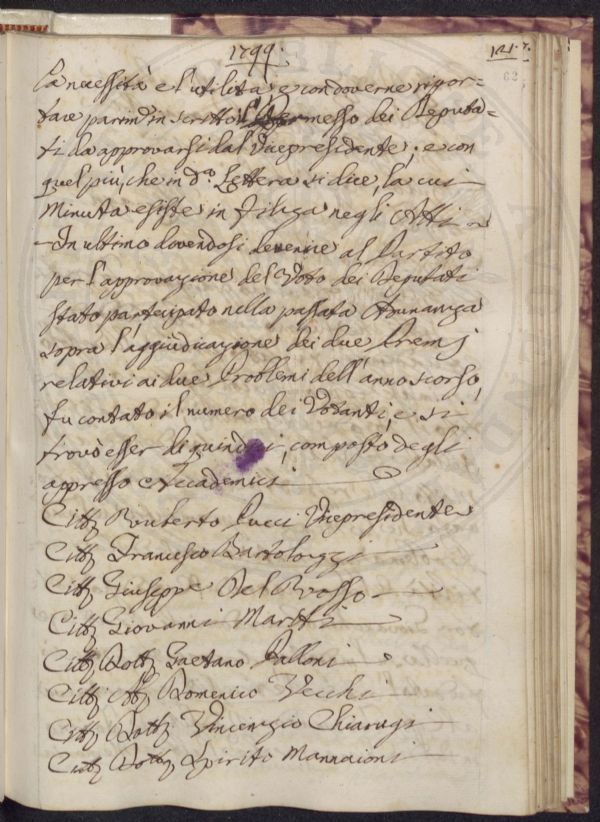 1799.
121.
62
la necessità e l'utilità, e con doverne ripor=
tare parim.e in scritto il Permesso dei Deputa=
ti da approvarsi dal Vicepresidente; e con
quel più, che in d.a Lettera si dice, la cui
Minuta esiste in Filza negli Atti
In ultimo dovendosi devenire al Partito
per l'approvazione del Voto dei Deputati
stato partecipato nella passata Adunanza
sopra l'aggiudicazione dei due Premj
relativi ai due Problemi dell'anno scorso,
fu contato il numero dei Votanti, e si
trovò esser di quindici, composto degli
appresso Accademici
Citt. Ruberto Pucci Vicepresidente
Citt. Francesco Bartolozzi
Citt. Giuseppe Del Rosso
Citt. Giovanni Mariti
Citt. Dott. Gaetano Palloni
Citt. Ab. Domenico Vecchi
Citt. Dott. Vincenzio Chiarugi
Citt. Dott. Spirito Mannaioni